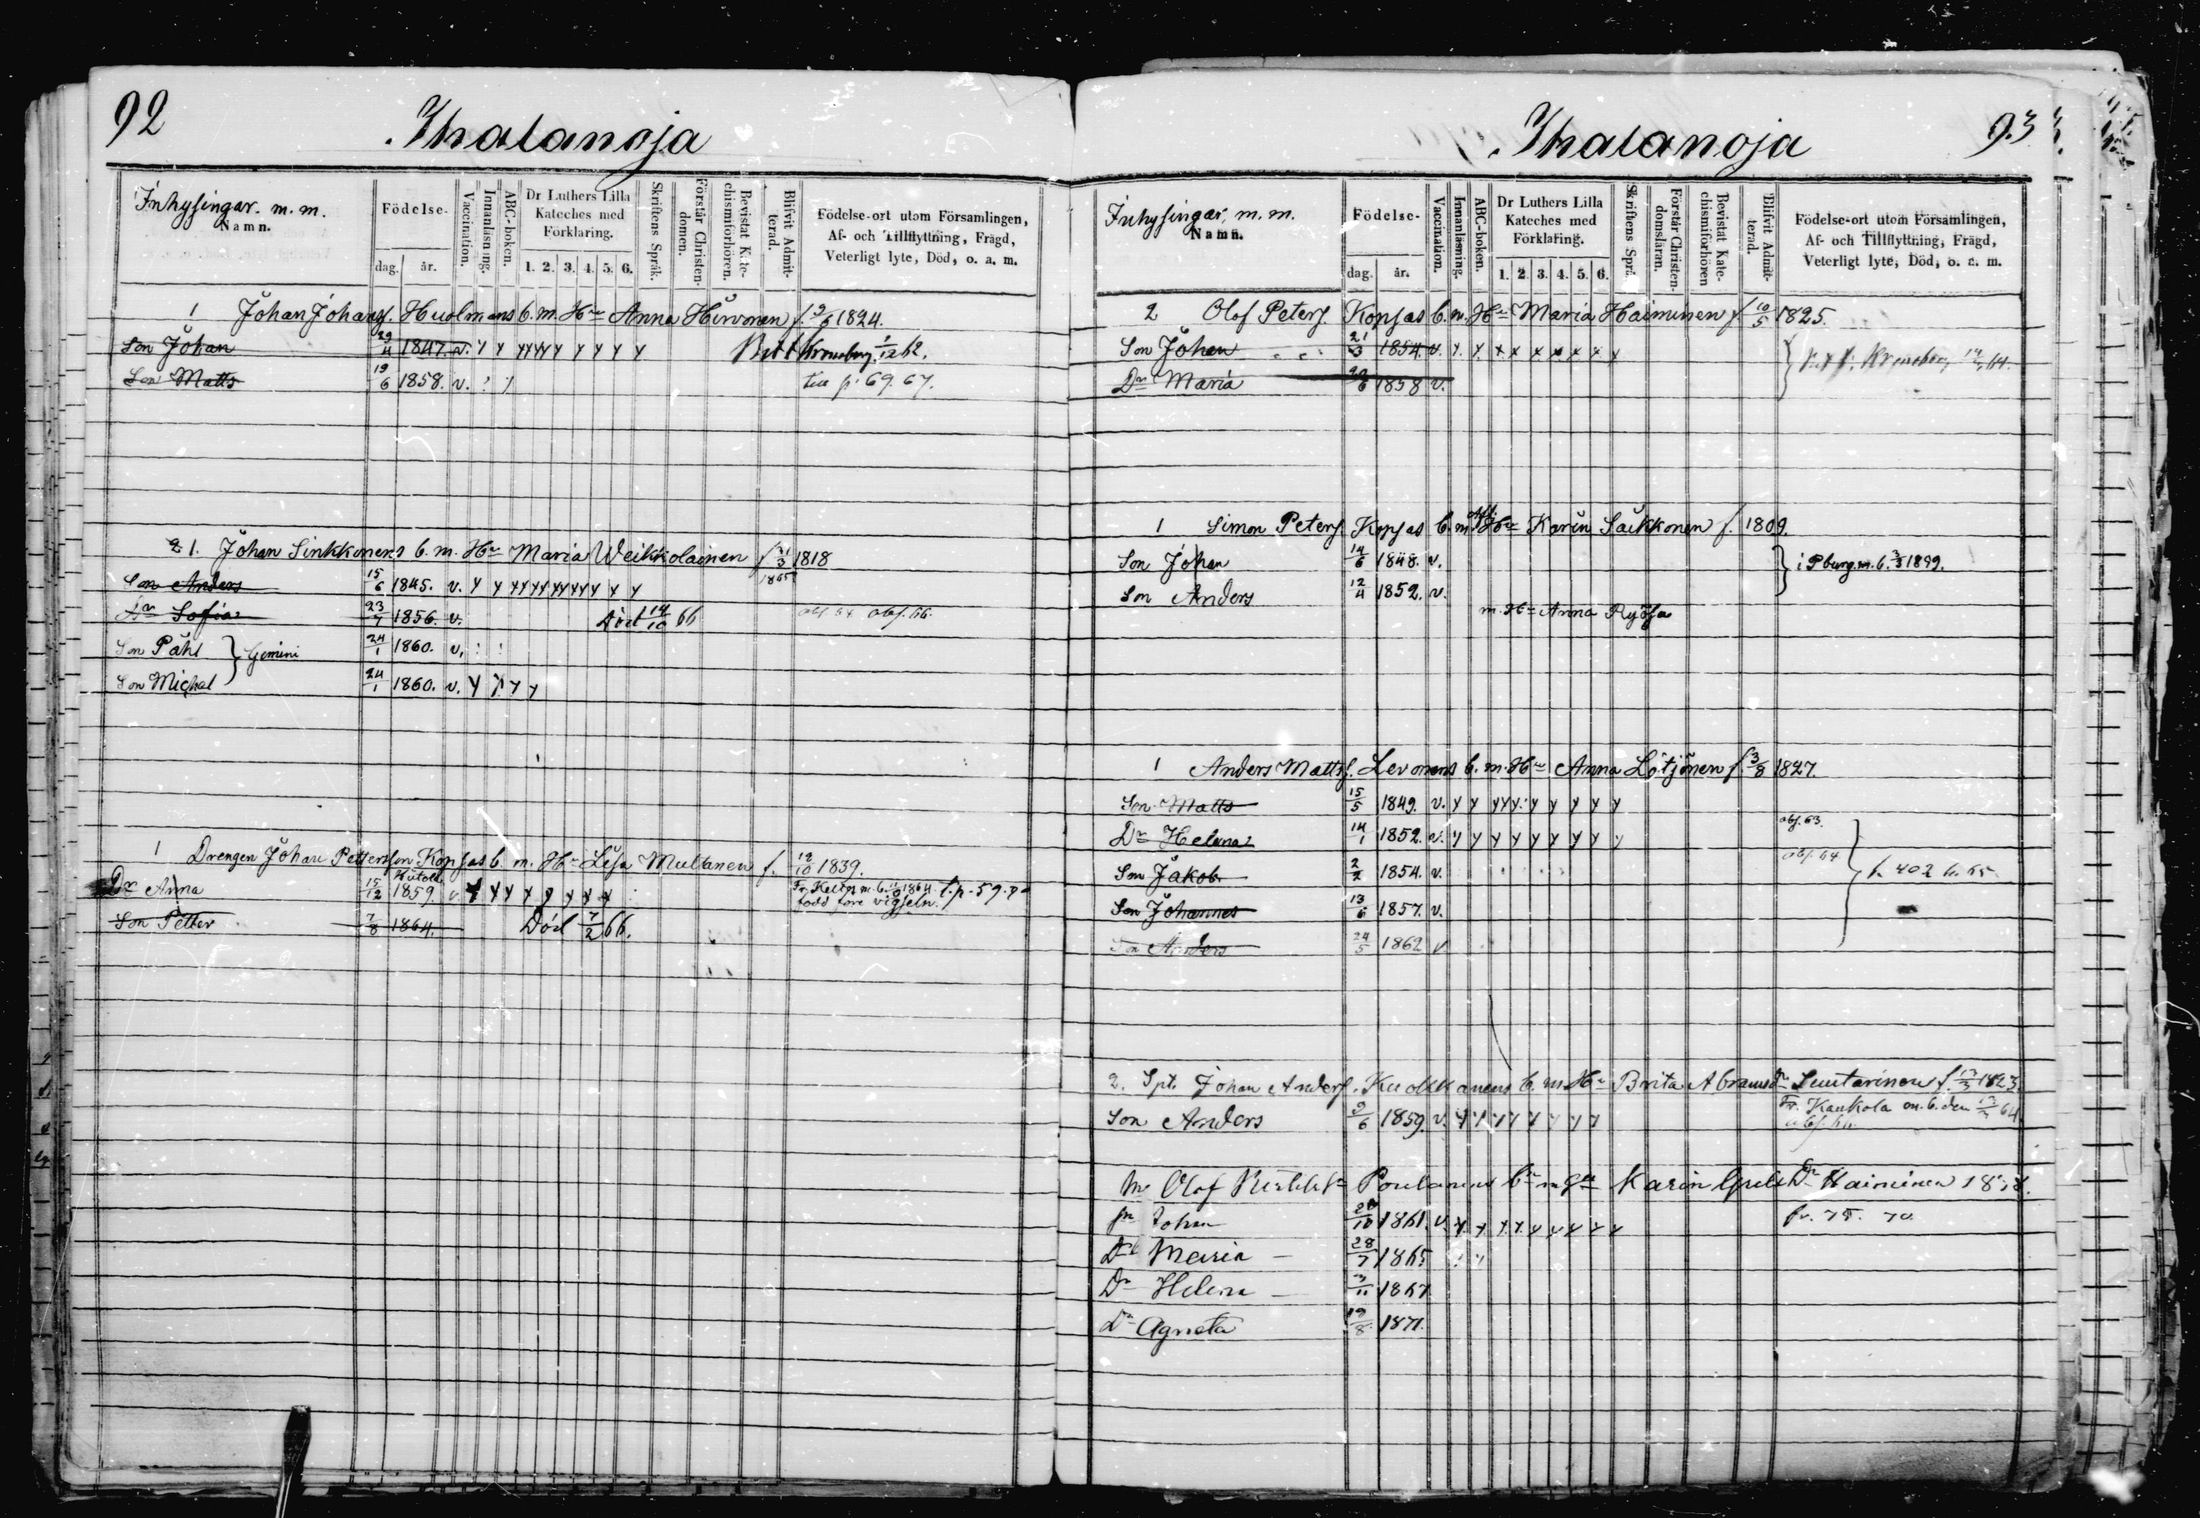 92
Ihalanoja
Inhysingar. m. m.
Namn.
Födelse-
dag.
år.
Vaccination.
Innanläsning.
ABC-boken.
Dr Luthers Lilla
Kateches med
Förklaring.
1. 2. 3. 4. 5. 6.
Skriftens Språk.
Förstår Christen-
domen.
Bevistat Kate-
chismiförhören.
Blifvit Admit-
terad.
Födelse-ort utom Församlingen,
Af- och Tillflyttning, Frägd,
Veterligt lyte, Död, o. a. m.
1 Johan Johansf. Huolmans b. m. Hu Anna Hirvonen f. 9/6 1824.
Son Johan 29/4 1847. v. y y y y y y y y y y Kronoborg 1/12 62.
Son Matts 19/6 1858. v. p. 69. 67.
2 1. Johan Sinkkonens b. m. Hu Maria Weikkolainen f 21/3 1818
1865
Son Anders 15/6 1845. v. y y y y y y y y y y y
Dr Sofia 23/7 1856. v. Död 14/10 66 abs. 64 abs. 66
Son Påhl 24/1 1860. v.
Gemini
Son Michal 24/1 1860. v. y y y y
1 Drengen Johan Petterson Kopsas b. m. Hu Lisa Multanen f. 12/10 1839.
Dr Anna 15/12 1859. v. y y y y y y y y
född före vigseln. t. p. 59.
Son Petter 7/8 1864. Död 7/2 66.
93
Ihalanoja
Inhysingar, m. m.
Namn.
Födelse-
dag.
år.
Vaccination.
Innanläsning.
ABC-boken.
Dr Luthers Lilla
Kateches med
Förklaring.
1. 2. 3. 4. 5. 6.
Skriftens Språ
Förstår Christen-
domsläran.
Bevistat Kate-
chismiförhören
Blifvit Admit-
terad.
Födelse-ort utom Församlingen,
Af- och Tillflyttning, Frägd,
Veterligt lyte, Död, o. a. m.
2 Olof Petersf. Kopsas b. m. Hu Maria Haiminen f 10/5 1825.
Son Johan 21/3 1854. v. y. y. x x x x x x y
Dr Maria 29/6 1858 v. Kronoborg 64.
1 Simon Petersf. Kopsas b. m. Hu Karin Säikkonen f. 1809.
Son Johan 14/6 1848. v.
i Pburg m. b. 3/3 1899.
Son Anders 12/4 1852. v.
m. Hu Anna Ryösä
1 Anders Mattsf. Levonens b. m. Hu Anna Lötjönen f. 3/8 1827.
Son Matts 15/5 1849. v. y y y y y y y y y y
Dr Helena 14/1 1852. v. y y y y y y y y y abs. 63.
Son Jakob 2/2 1854. v. abs. 64
402
Son Johannes 13/6 1857. v.
Son Anders 24/5 1862 v
2. Spt. Johan Andersf. Kuokkanens b. m. Hu Brita Abramsdr Suutarinen f. 1823.
Fr. Kaukola m. b. den 64.
Son Anders 9/6 1859. v. y y y y y y y y
Olof Poulanens m Karin Haiminen
Johan 1861. v. y y y y y y y y y fr. 75. 70
Dr Maria 28/7 1865
Dr Helena 1867
Dr Agneta 19/8 1871.